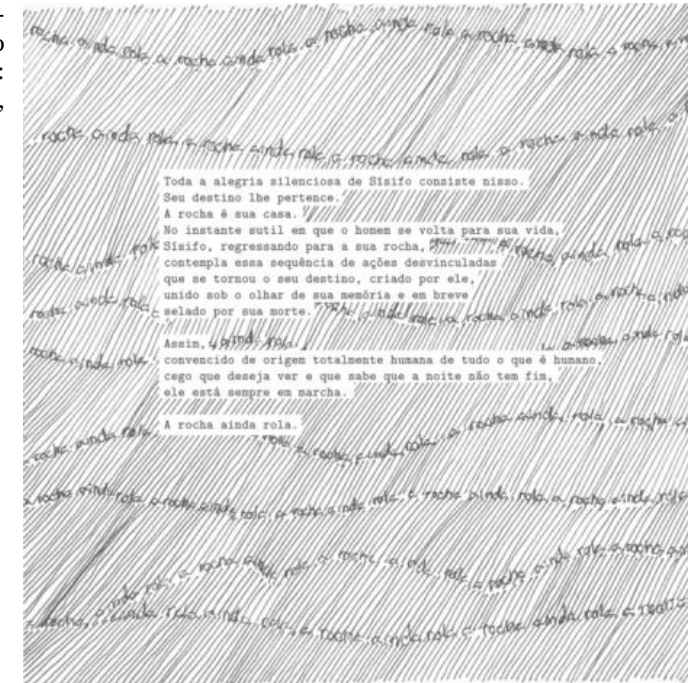 rocha ainda rola a rocha ainda rola a rocha ainda rola a rocha ainda rola a rocha a
rocha ainda rola a rocha ainda rola a rocha ainda rola a rocha ainda rola a
Toda a alegria silenciosa de Sísifo consiste nisso.
Seu destino lhe pertence.
A rocha é sua casa.
No instante sutil em que o homem se volta para sua vida,
Sísifo, regressando para a sua rocha,
contempla essa sequência de ações desvinculadas
que se tornou o seu destino, criado por ele,
unido sob o olhar de sua memória e em breve
selado por sua morte.
Assim,
convencido de origem totalmente humana de tudo o que é humano,
cego que deseja ver e que sabe que a noite não tem fim,
ele está sempre em marcha.
A rocha ainda rola.
a rocha ainda rola a rocha ainda rola a rocha ainda rola a rocha ainda rola a rocha ainda rola
ainda rola a rocha ainda rola a rocha ainda rola a rocha
a rocha, ainda rola ainda rola a rocha ainda rola a rocha ainda rola a rocha